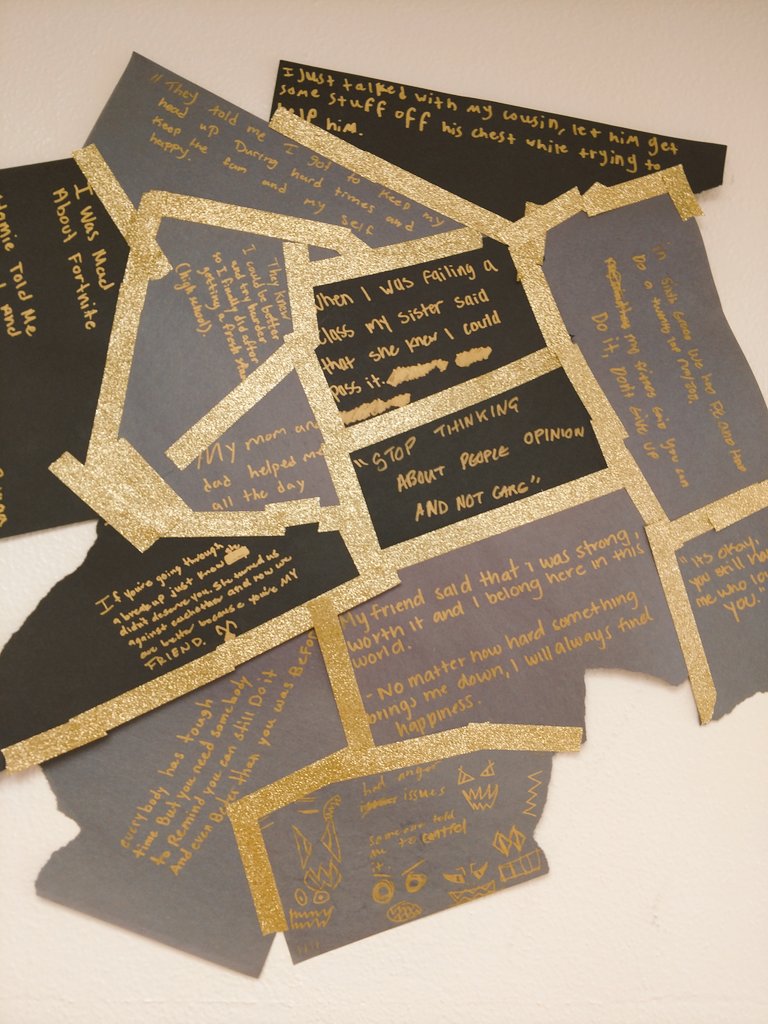 I Just talked with my cousin, let him get
some stuff off his chest while trying to
help him.
"They told me I got to keep my
head up During hard times and
keep the fam and my self
happy.
I Was Mad
About Fortnite
Told Me
and
They knew
I could be better
and try harder
so I finally did after
getting a fresh start
(high school).
When I was failing a
class my sister said
that she knew I could
pass it.
My mom and
dad helped me
all the day
"STOP THINKING
ABOUT PEOPLE OPINION
AND NOT CARE"
In sixth Grade we had PE and had
Do a
my sister said you can
Do it, Don't Give up
"its okay,
you still have
me who loves
you."
If you're going through
a breakup just know
didn't deserve you. She turned us
against eachother and now we
are better because you're MY
FRIEND.
My friend said that i was strong,
worth it and I belong here in this
world.
- No matter how hard something
brings me down, I will always find
happiness.
everybody has tough
time But you need somebody
to Remind you can still Do it
And even Better than you was Before
had anger
issues
someone told
me to control
it.